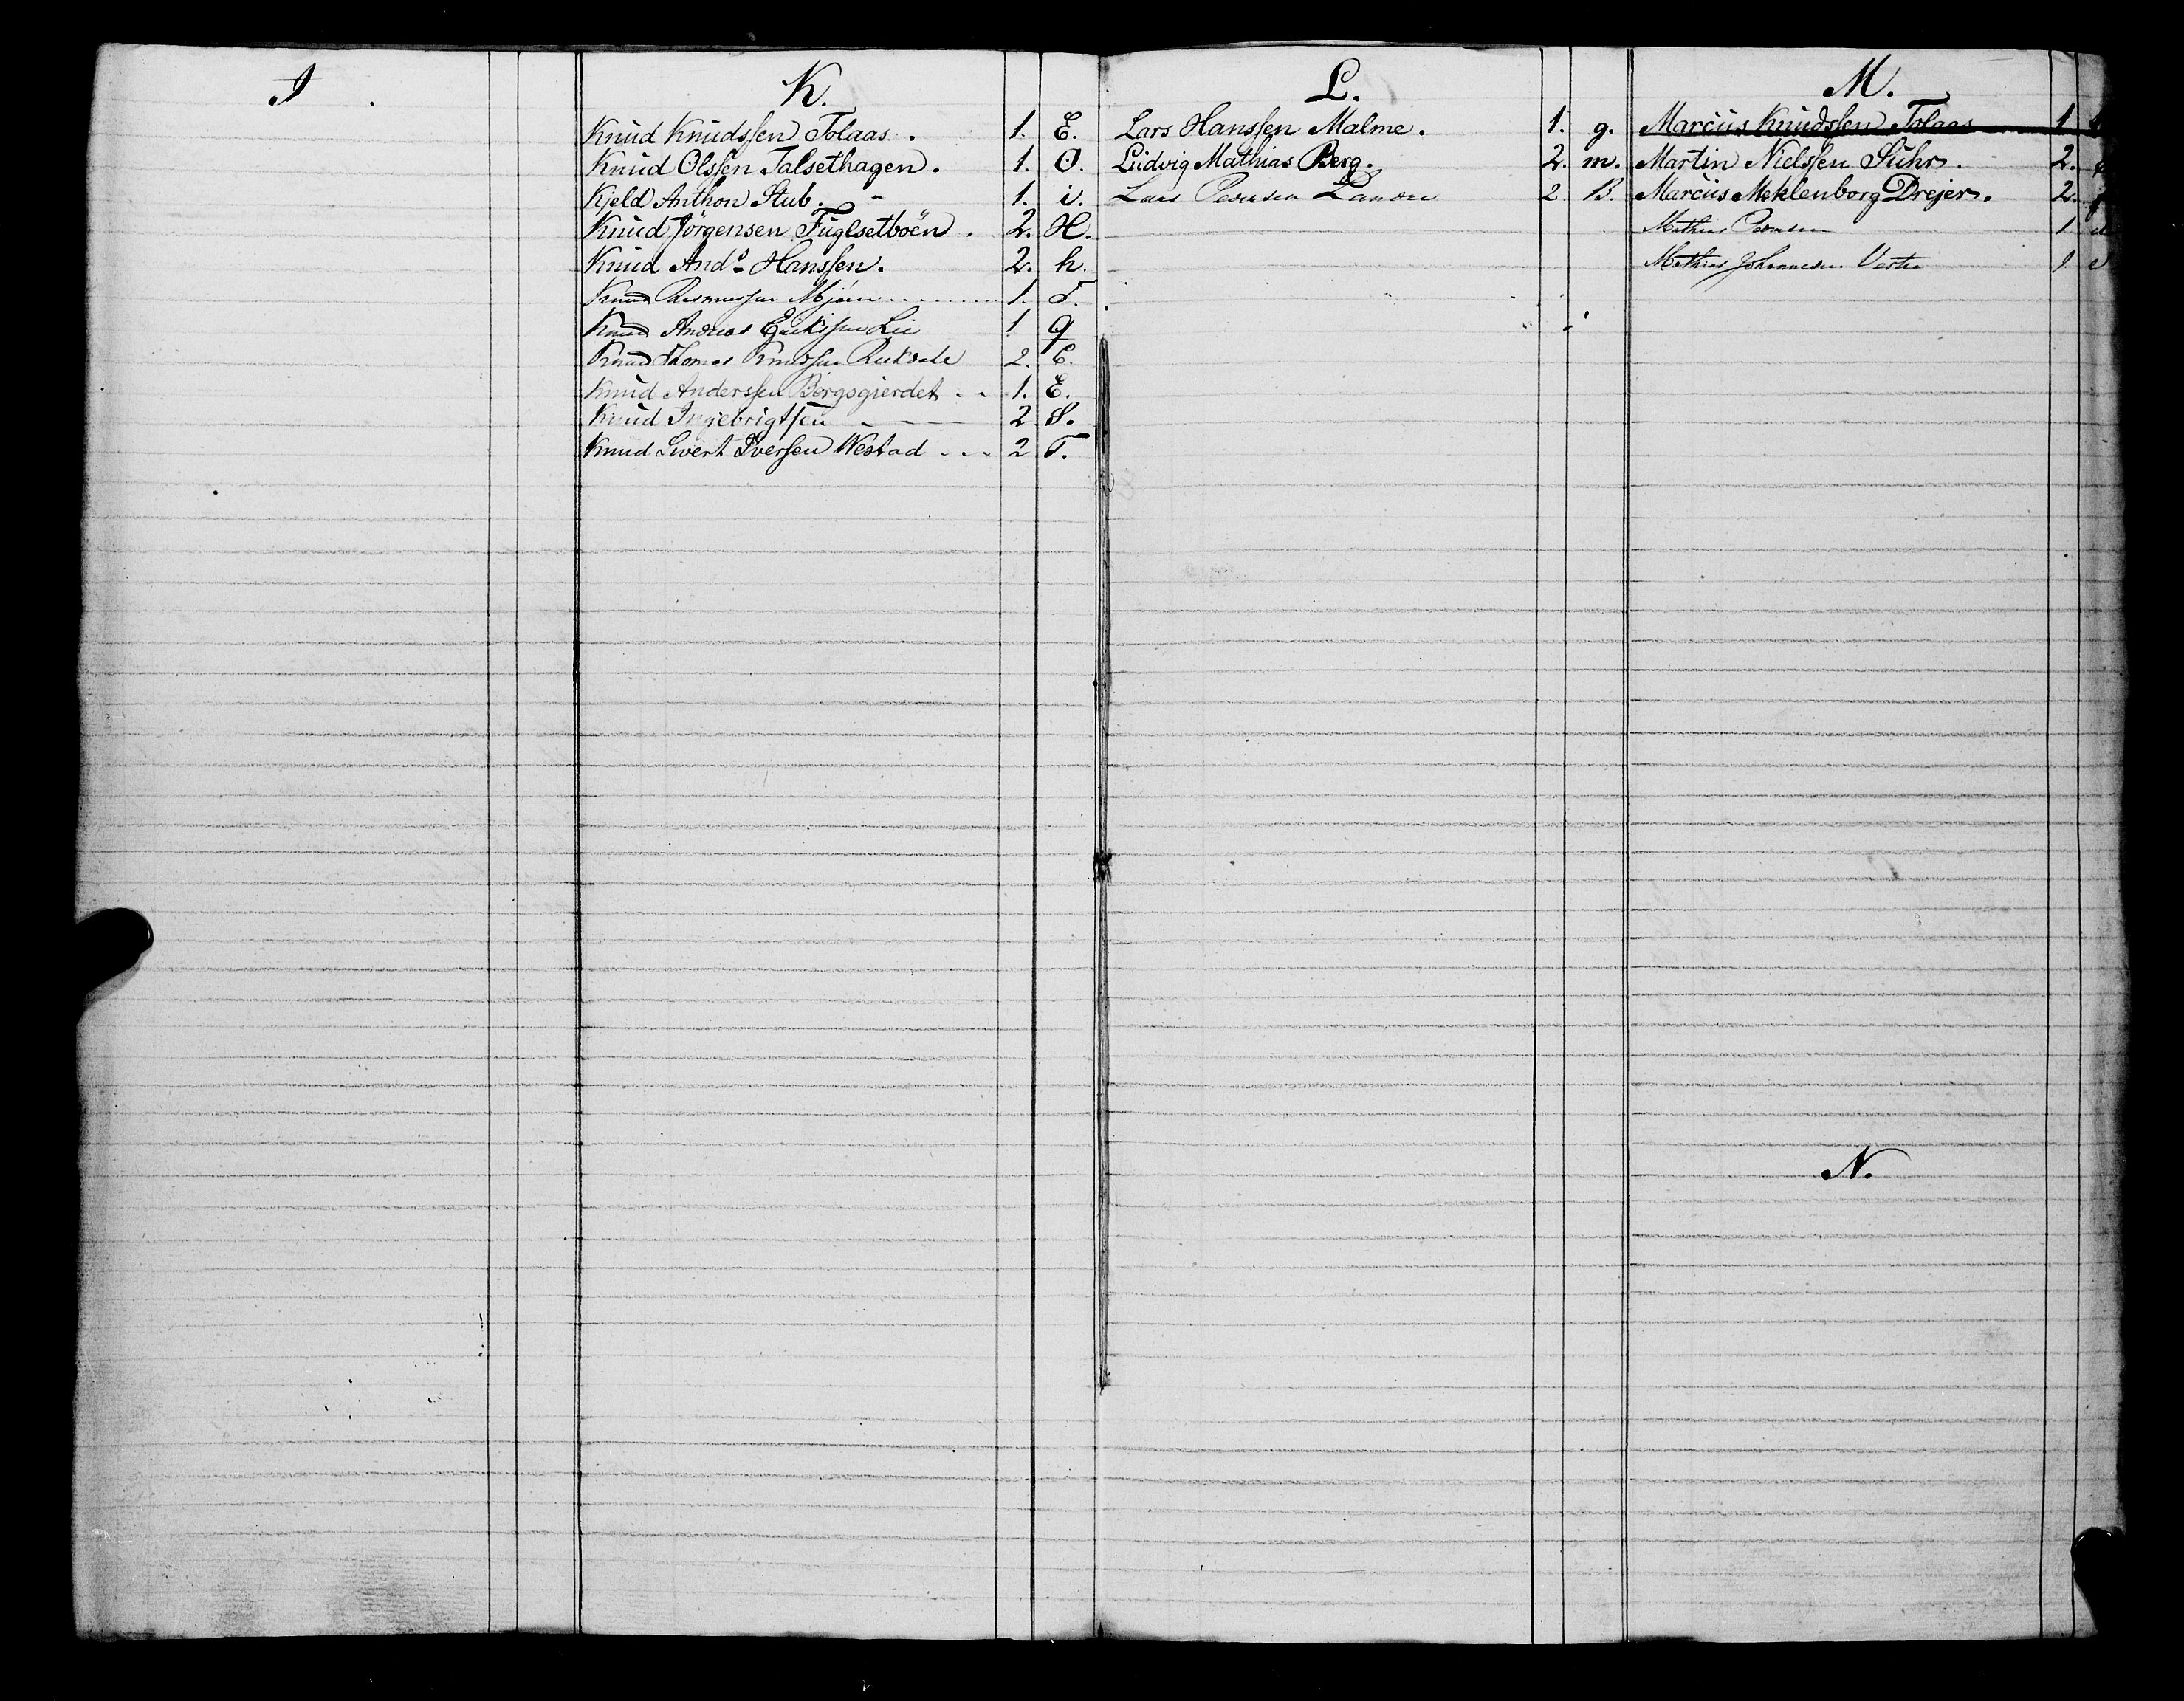 J.
K.
Knud Knudssen Tolaas. 1. E.
Knud Olssen Talsethagen. 1. O.
Kjeld Anthon Stub. 1. i.
Knud Jörgensen Fuglsetböen. 2. H.
Knud Ands Hanssen. 2. h.
Knud Rasmussen 1.
Knud Andreas Lie 1 q
Knud Thomas Knudssen 2. E.
Knud Anderssen Bergsgjerdet 1. E.
Knud Ingebrigtsen 2 S.
Knud Sivert Iversen Westad 2 T.
L.
Lars Hanssen Malme. 1. g.
Ludvig Mathias Berg. 2. m.
Lars 2. B.
M.
Marcus Knudssen Tolaas 1
Martin Nielssen Suhr. 2.
Marcus Meklenborg Drejer. 2.
Mathias 1
Mathias Johannesen 1
N.